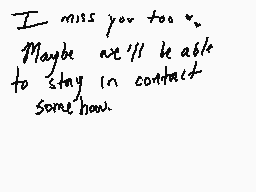 I miss you too
Maybe we'll be able
to stay in contact
somehow.